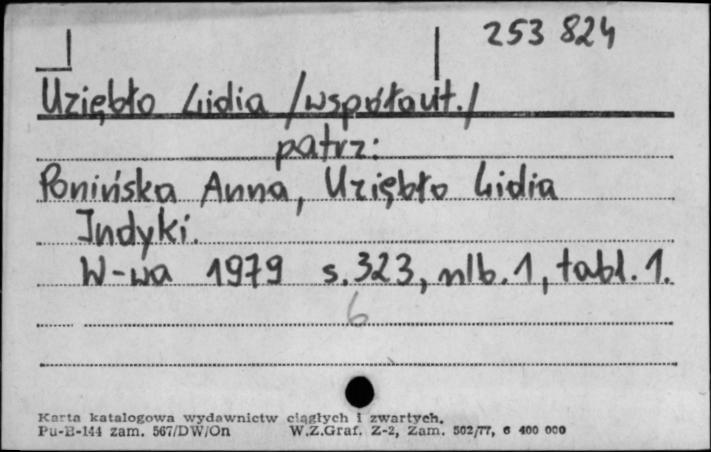 253 824
Uziębło Lidia /współaut./
patrz:
Ponińska Anna, Uziębło Lidia
Indyki.
W-wa 1979 s. 323, nlb. 1, tabl. 1.
6
Karta katalogowa wydawnictw ciągłych i zwartych.
Pu-B-144 zam. 567/DW/On W.Z.Graf. Z-2, Zam. 502/77, 6 400 000